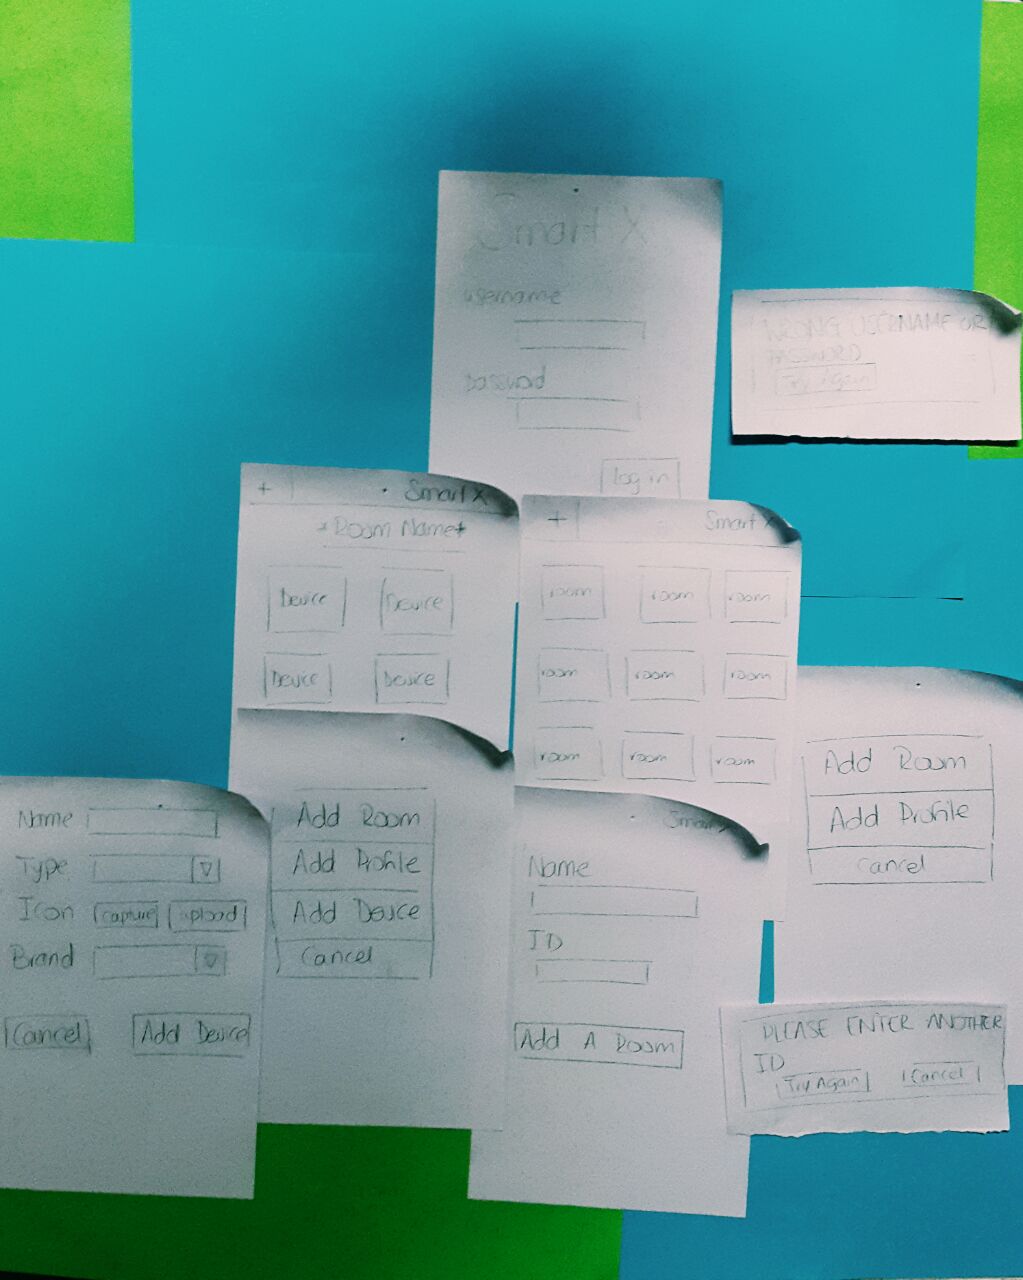 Smart X
username
password
Log in
WRONG USERNAME OR
PASSWORD
Try Again
+ Smart X
*Room Name*
Device Device
Device Device
+ Smart X
room room room
room room room
room room room
Add Room
Add Profile
Cancel
Name
Type
Icon capture upload
Brand
Cancel Add Device
Add Room
Add Profile
Add Device
Cancel
Smart X
Name
ID
Add A Room
PLEASE ENTER ANOTHER
ID
Try Again Cancel